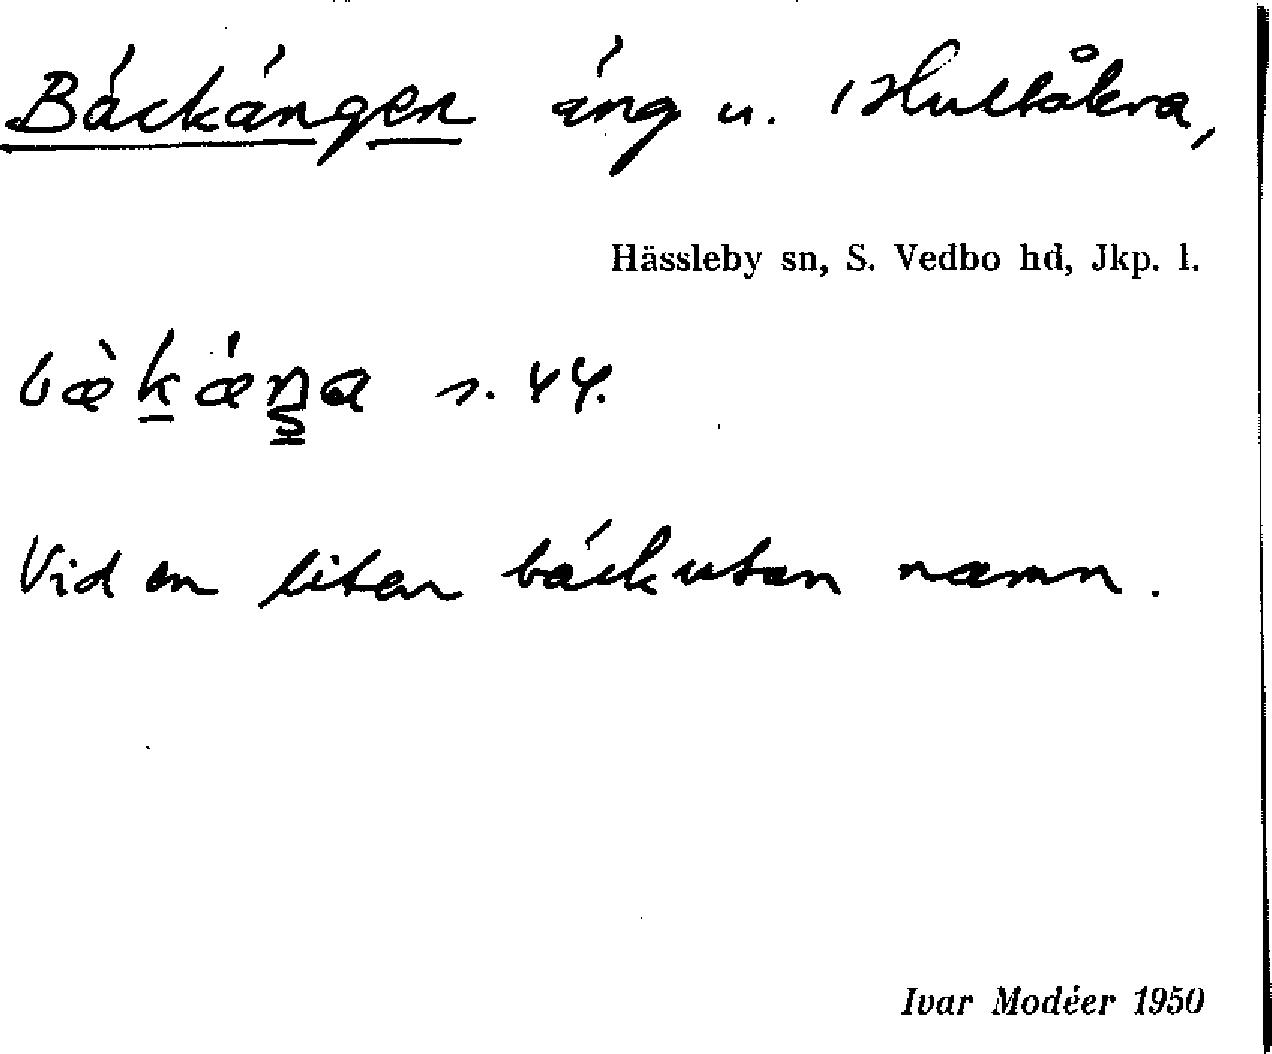 Bäckängen äng u. Hultåkra,
Hässleby sn, S. Vedbo hd, Jkp. l.
s. 44.
Vid en liten bäck utan namn.
Ivar Modéer 1950